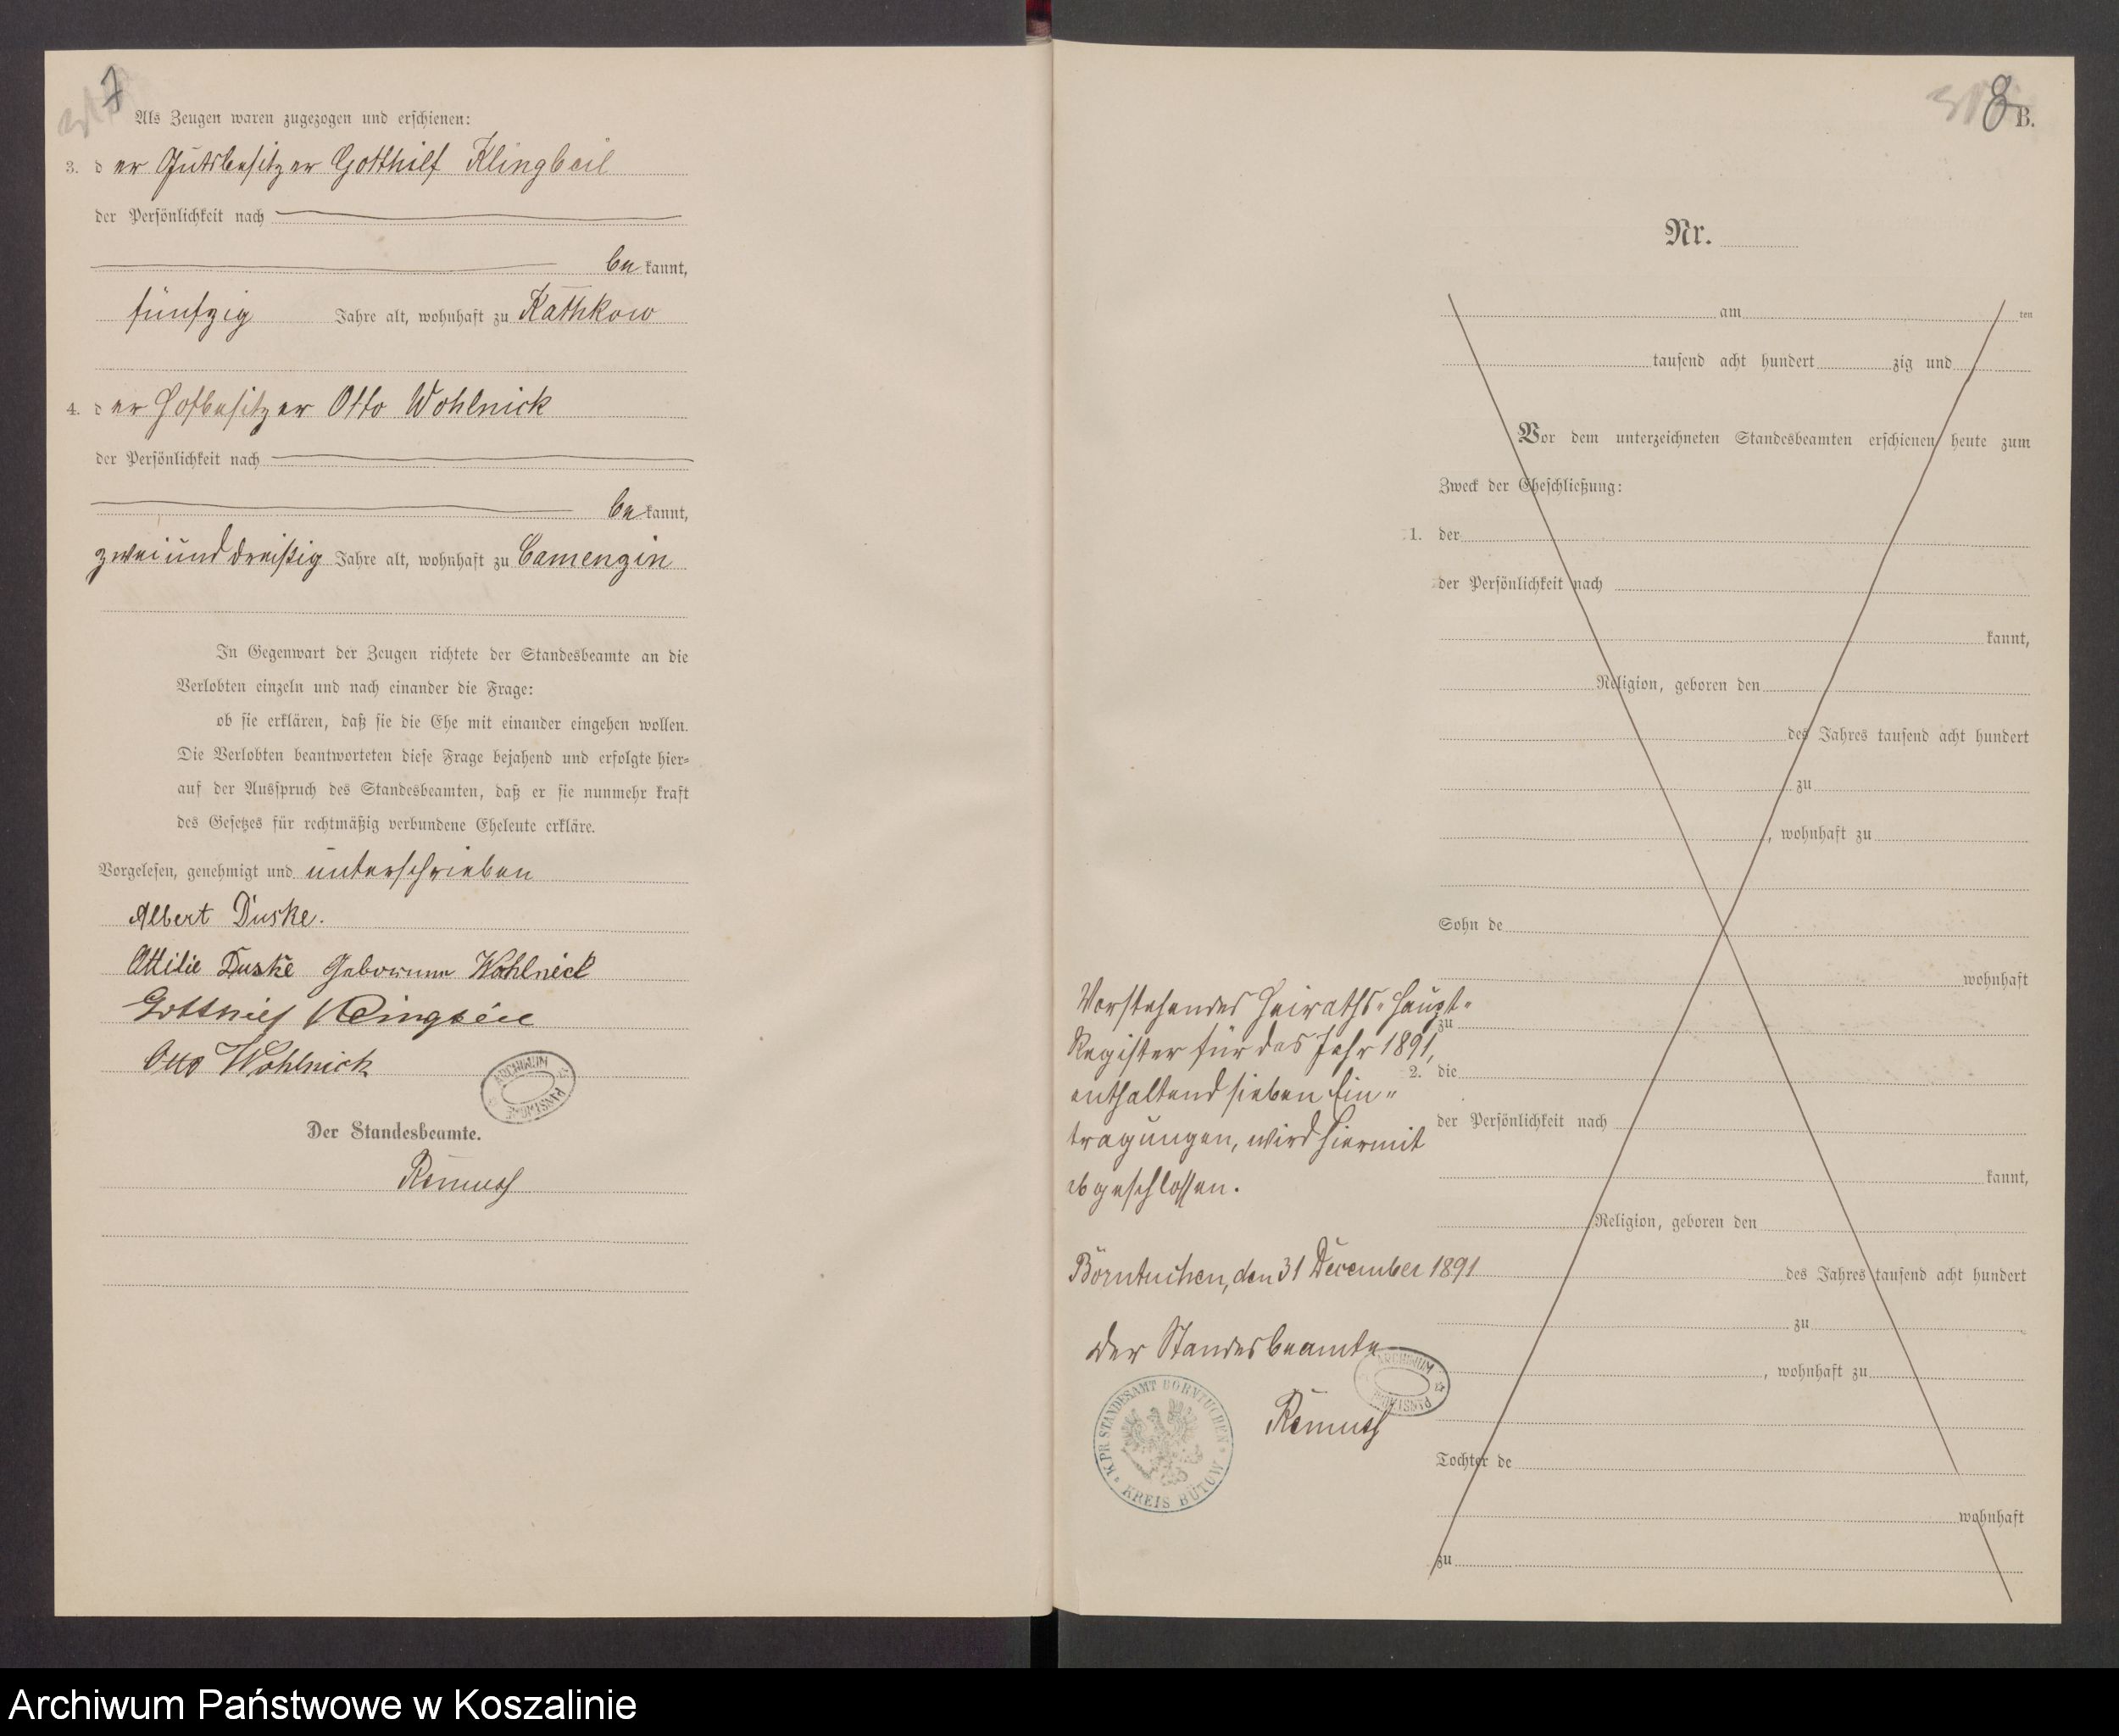 7
Als Zeugen waren zugezogen und erschienen:
3. der Gutsbesitzer Gotthilf Klingbeil
der Persönlichkeit nach
bekannt,
fünfzig Jahre alt, wohnhaft zu Kathkow
4. der Hofbesitzer Otto Wohlnick
der Persönlichkeit nach
bekannt,
zweiunddreißig Jahre alt, wohnhaft zu Camenzin
In Gegenwart der Zeugen richtete der Standesbeamte an die
Verlobten einzeln und nach einander die Frage:
ob sie erklären, daß sie die Ehe mit einander eingehen wollen.
Die Verlobten beantworteten diese Frage bejahend und erfolgte hier-
auf der Ausspruch des Standesbeamten, daß er sie nunmehr kraft
des Gesetzes für rechtmäßig verbundene Eheleute erkläre.
Vorgelesen, genehmigt und unterschrieben
Albert Duske.
Ottilie Duske geborene Wohlnick
Gotthilf Klingbeil
Otto Wohlnick
ARCHIWUM PAŃSTWOWE
Der Standesbeamte.
Remus
8
B.
Nr.
am ten
tausend acht hundert zig und
Vor dem unterzeichneten Standesbeamten erschienen heute zum
Zweck der Eheschließung:
1. der
der Persönlichkeit nach
kannt,
Religion, geboren den
des Jahres tausend acht hundert
zu
, wohnhaft zu
Sohn de
wohnhaft
zu
2. die
der Persönlichkeit nach
kannt,
Religion, geboren den
des Jahres tausend acht hundert
zu
, wohnhaft zu
Tochter de
wohnhaft
zu
Vorstehendes Heiraths-Haupt-
Register für das Jahr 1891,
enthaltend sieben Ein-
tragungen, wird hiermit
abgeschlossen.
Borntuchen, den 31 December 1891
Der Standesbeamte
Remus
ARCHIWUM PAŃSTWOWE
K. PR. STANDESAMT BORNTUCHEN
KREIS BÜTOW
Archiwum Państwowe w Koszalinie